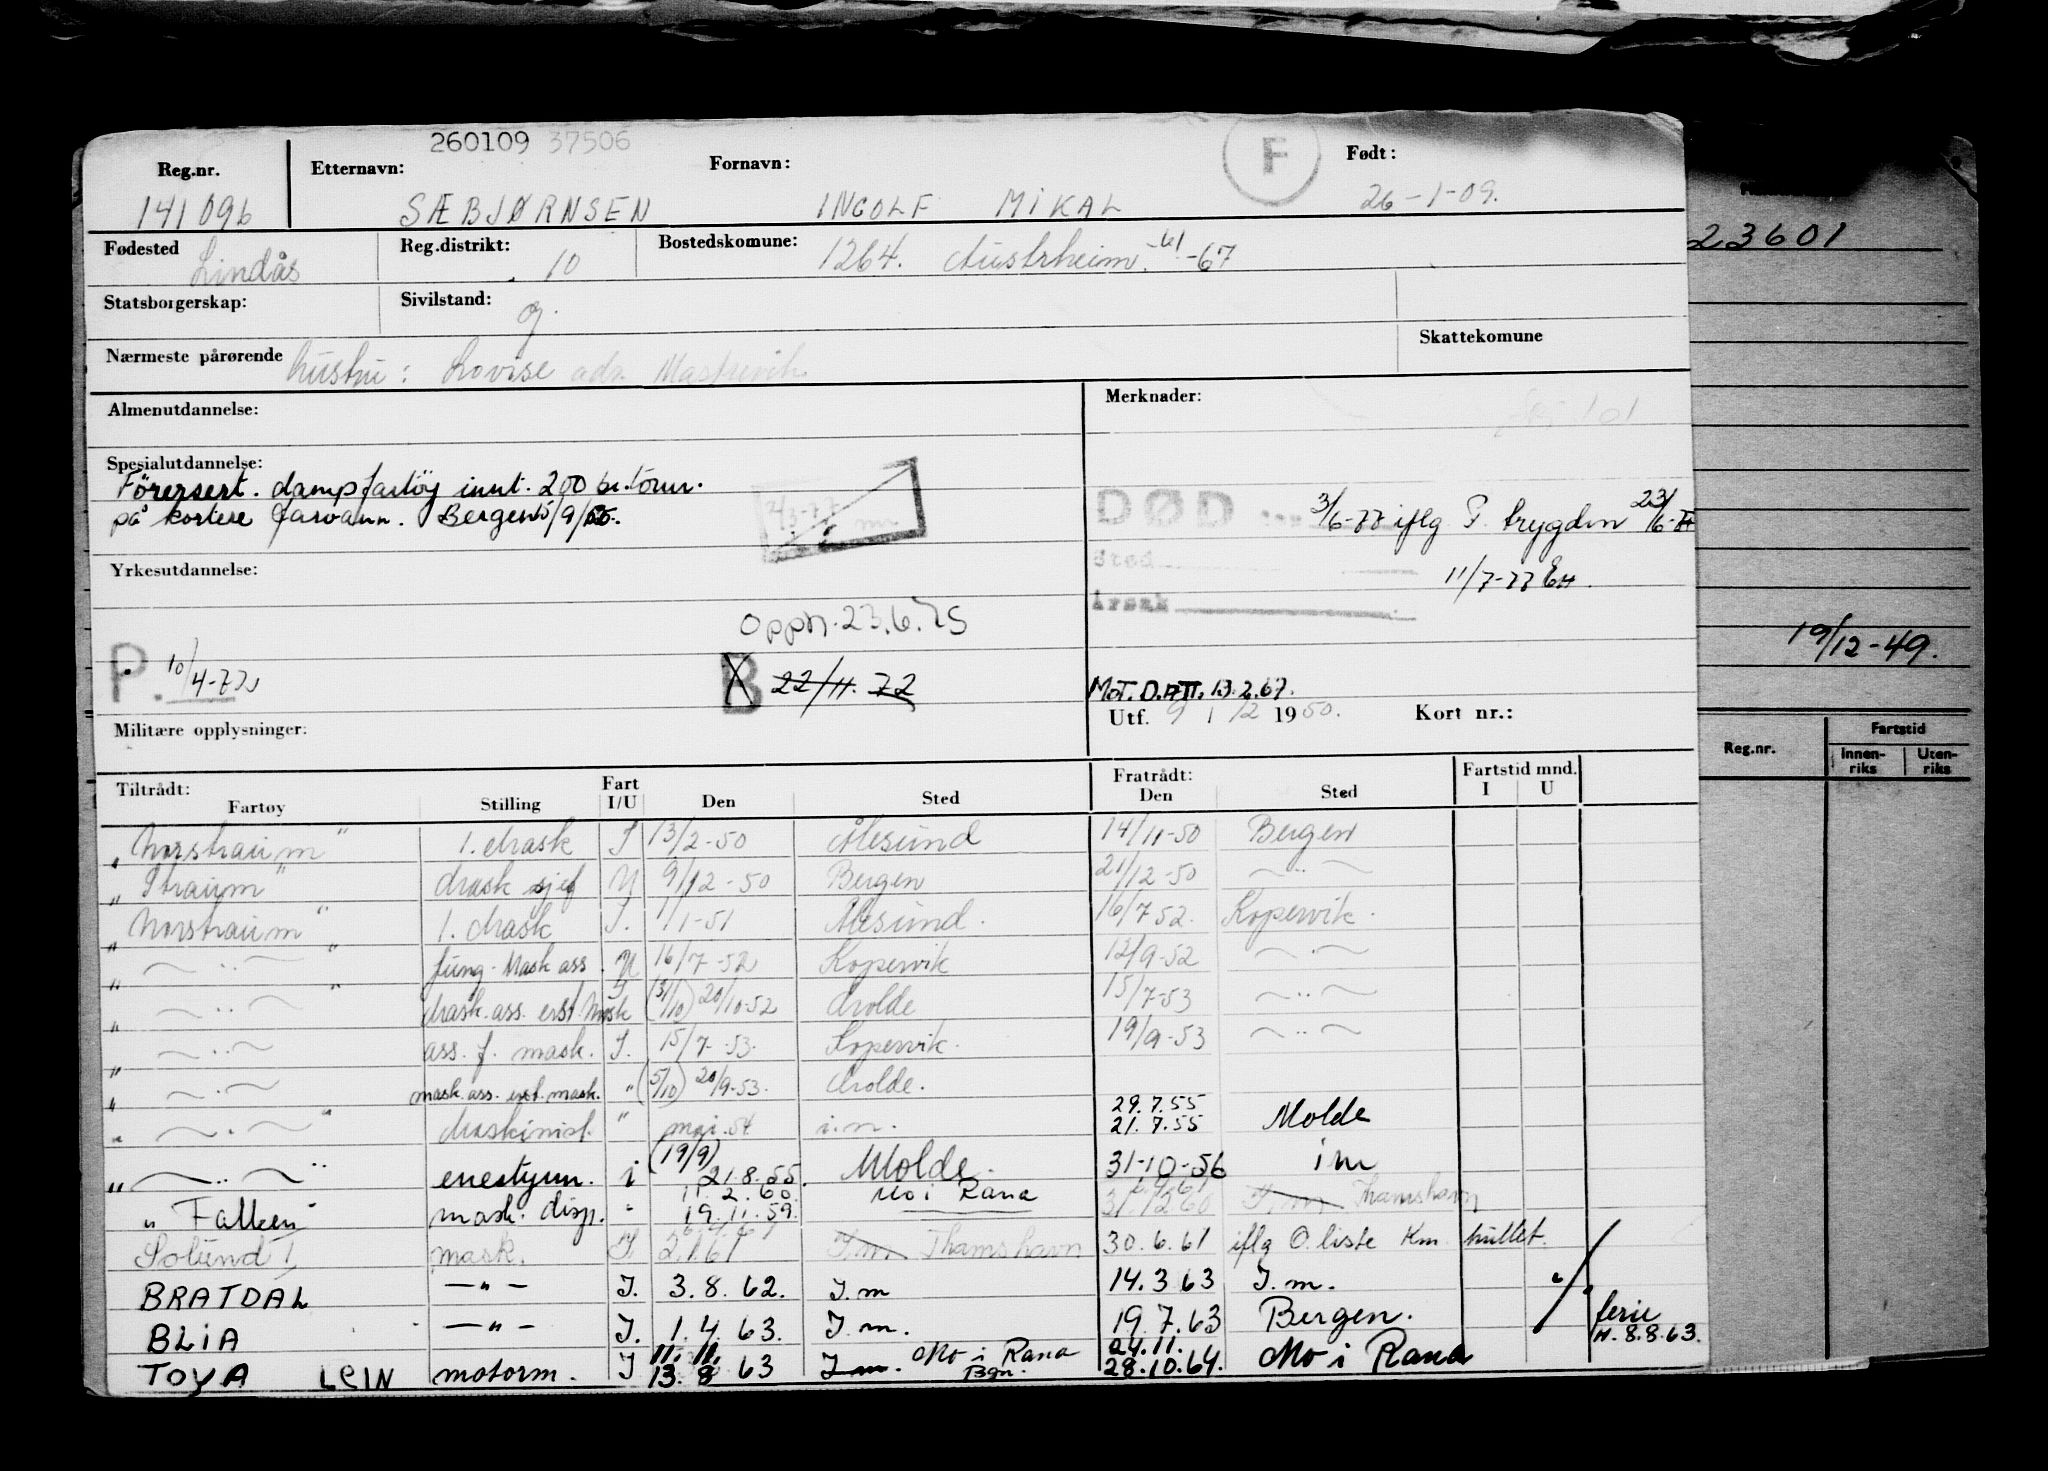 260109 37506
Reg.nr. Etternavn: Fornavn: F Født:
141096 SÆBJØRNSEN INGOLF MIKAL 26-1-09.
Fødested Lindås Reg.distrikt: 10 Bostedskomune: 1264. Austrheim. -61 -67
23601
Statsborgerskap: Sivilstand: g.
Nærmeste pårørende hustru: Lovise adr. Mastrevik Skattekomune
Almenutdannelse: Merknader: 101
Spesialutdannelse:
Førersert. dampfartöy innt. 200 br.tonn.
på kortere farvann. Bergen 5/9/
DØD 3/6-77 iflg P. trygden 23/6-77
Sted 11/7-77 EH.
Årsak
Yrkesutdannelse:
Oppn. 23.6.75
19/12-49.
P. 10/4-72 B 22/11.72
MOT. D. ATT. 13.2.67.
Utf. 9 / 12 1950. Kort nr.:
Militære opplysninger:
Reg.nr. Fartstid Innen-riks Uten-riks
Tiltrådt: Fart Fratrådt: Fartstid mnd.
Fartøy Stilling I/U Den Sted Den Sted I U
"Norstraum" 1. Mask I 13/2-50 Ålesund 14/11-50 Bergen
"Straum" Mask sjef U 9/12-50 Bergen 21/12-50 —"—
"Norstraum" 1. Mask I. 1/1-51 Ålesund. 16/7 52. Kopervik.
" —"— " fung. Mask ass. U 16/7-52 Kopervik 12/9-52 —"—
" —"— " Mask. ass. erst. Mask I (31/10) 20/10-52 Molde 15/7-53 —"—
" —"— ass. f. mask. I. 15/7-53. Kopervik. 19/9-53 —"—
" —"— mask. ass. erst. mask. " (5/10) 20/9-53. Molde.
" —"— " Maskinist. " mai 54 i.m. 29.7.55 21.7.55 Molde
" —"— " enestyrm. i (19/9) 21.8.55. Molde. 31-10-56 im
"Falken" mask. disp. " 11.2.60. 19.11.59. Mo i Rana 31.12 60 I.m Thamshavn
Solund I mask. I 2.1.61 I.m Thamshavn 30.6.61 iflg O. liste Km. hullet.
BRATDAL —"— I. 3.8.62. I.m 14.3.63 I.m. "
BLIA —"— I. 1.4.63. I.m. 19.7.63 Bergen. ferie H. 8.8.63.
TOYA LEIN motorm. I 11.11. 13.8 63 I m. Mo i Rana Bgn. 24.11. 28.10.64. Mo i Rana